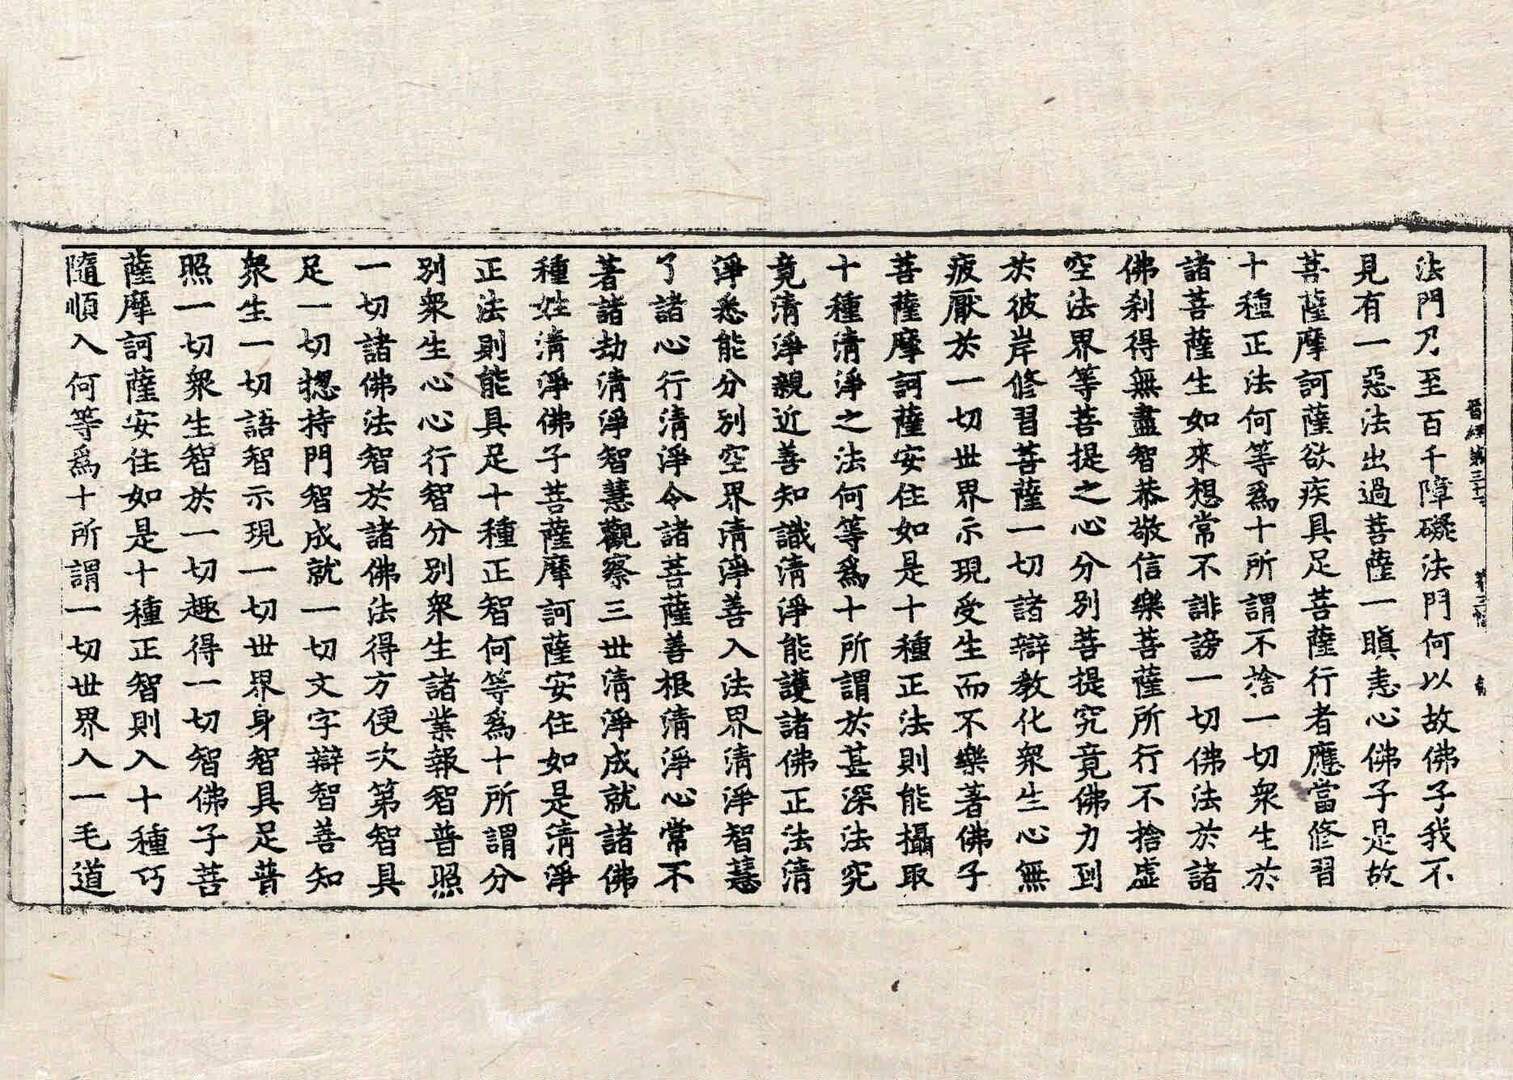 法門乃至百千障礙法門何以故佛子我不
見有一惡法出過菩薩一瞋恚心佛子是故
菩薩摩訶薩欲疾具足菩薩行者應當修習
十種正法何等爲十所謂不捨一切衆生於
諸菩薩生如來想常不誹謗一切佛法於諸
佛刹得無盡智恭敬信樂菩薩所行不捨虛
空法界等菩提之心分別菩提究竟佛力到
於彼岸修習菩薩一切諸辯教化衆生心無
疲厭於一切世界示現受生而不樂著佛子
菩薩摩訶薩安住如是十種正法則能攝取
十種清淨之法何等爲十所謂於甚深法究
竟清淨親近善知識清淨能護諸佛正法清
淨悉能分別空界清淨善入法界清淨智慧
了諸心行清淨令諸菩薩善根清淨心常不
著諸劫清淨智慧觀察三世清淨成就諸佛
種姓清淨佛子菩薩摩訶薩安住如是清淨
正法則能具足十種正智何等爲十所謂分
別衆生心心行智分別衆生諸業報智普照
一切諸佛法智於諸佛法得方便次第智具
足一切揔持門智成就一切文字辯智善知
衆生一切語智示現一切世界身智具足普
照一切衆生智於一切趣得一切智佛子菩
薩摩訶薩安住如是十種正智則入十種巧
隨順入何等爲十所謂一切世界入一毛道